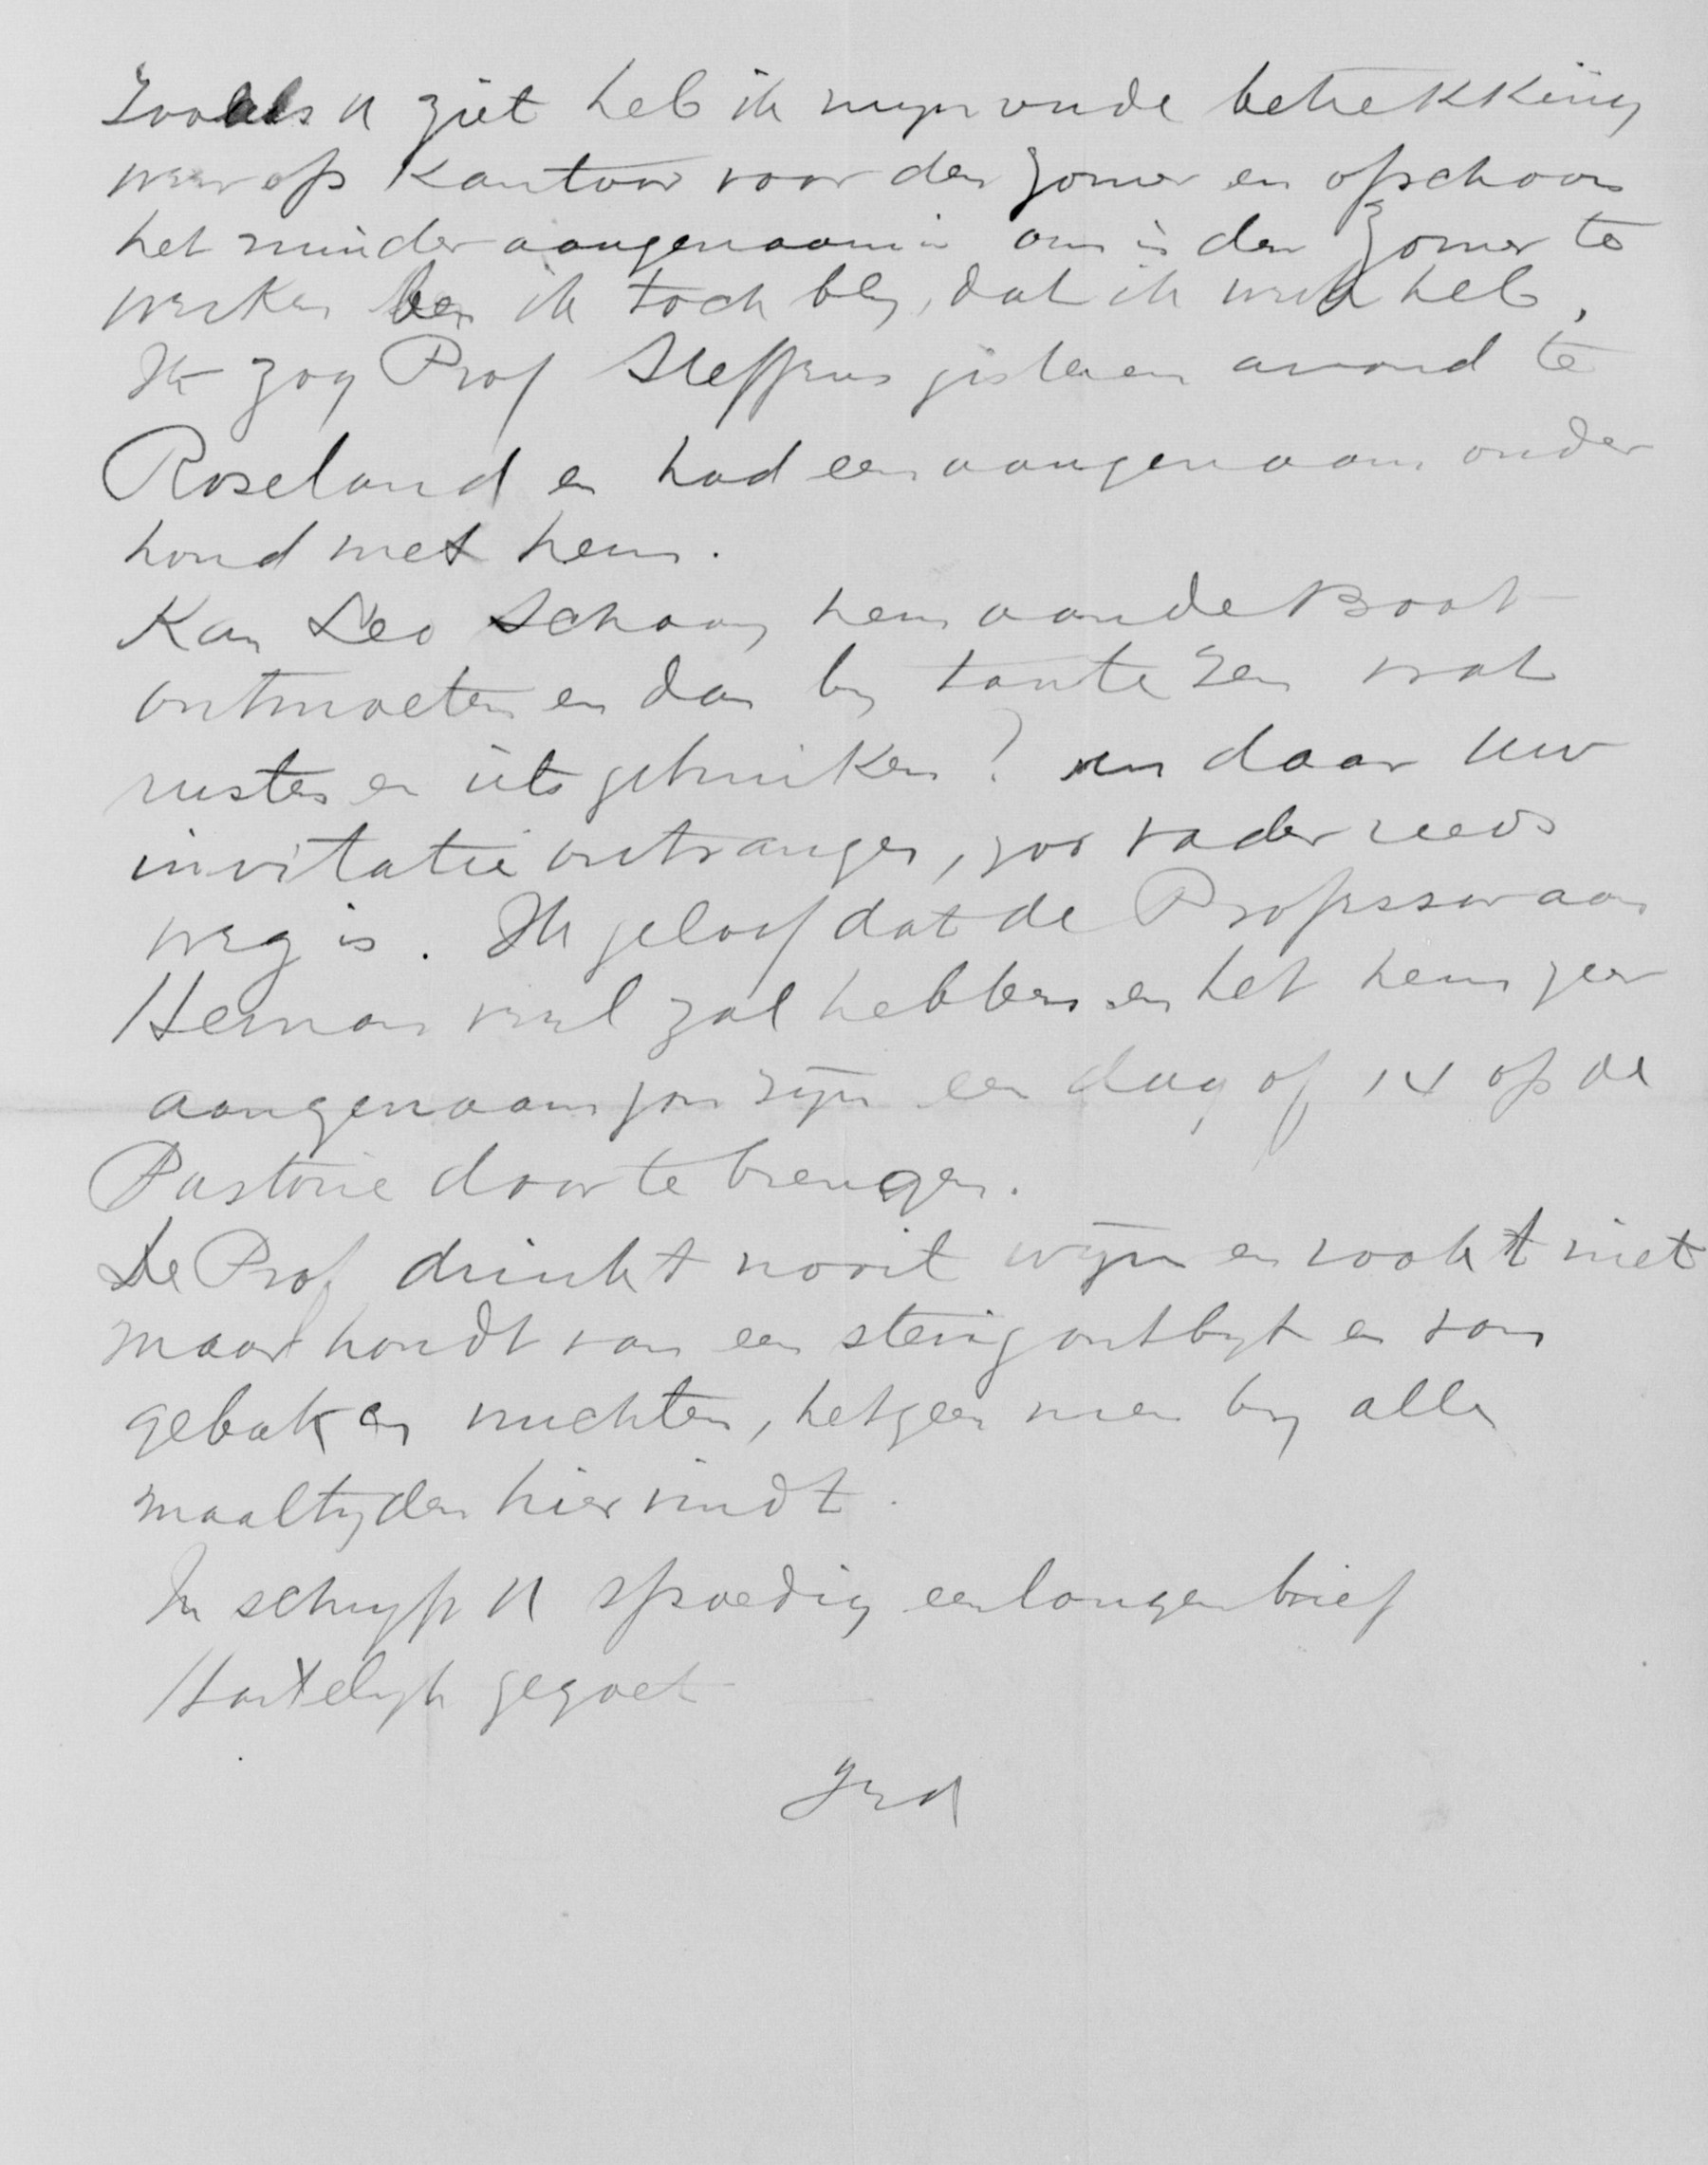 Zooals U ziet heb ik mijn oude betrekking
weer op Kantoor voor den zomer en ofschoon
het minder aangenaam is om in den zomer te
werken ben ik toch bly, dat ik werk heb,
Ik zag Prof Steffens gisteren avond te
Roseland en had een aangenaam onder
houd met hem.
Kan Leo Schaay hem aan de Boot
ontmoeten en dan by tante wat
rusten en iets gebruiken? en daar uw
invitatie ontvangen, zoo vader reeds
weg is. Ik geloof dat de Professor aan
Herman veel zal hebben en het hem zeer
aangenaam zou zijn een dag of 14 op de
Pastorie door te brengen.
De Prof drinkt nooit wijn en rookt niet
maar houdt van een stevig ontbyt en van
gebak en vruchten, hetgeen men by alle
maaltyden hier vindt.
Ik schryf U spoedig een langen brief
Hartelyk gegroet